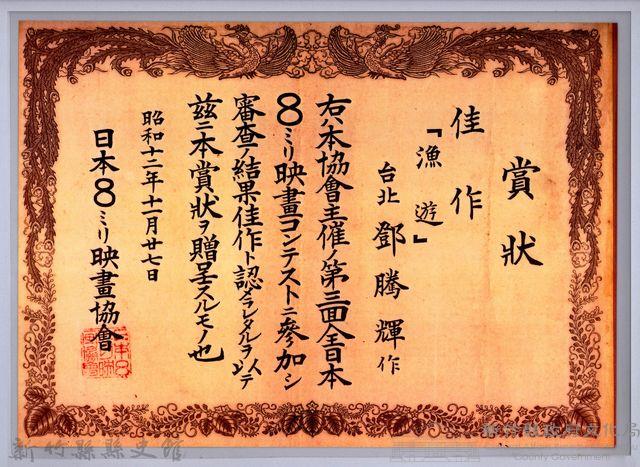 賞狀
佳作
『漁遊』
台北 鄧騰輝 作
右ハ本協會主催ノ第三回全日本
8ミリ映畫コンテストニ參加シ
審査ノ結果佳作ト認メラレタルヲ以テ
茲ニ本賞狀ヲ贈呈スルモノ也
昭和十二年十一月廿七日
日本8ミリ映畫協會
新竹縣縣史館
新竹縣政府文化局
County Government